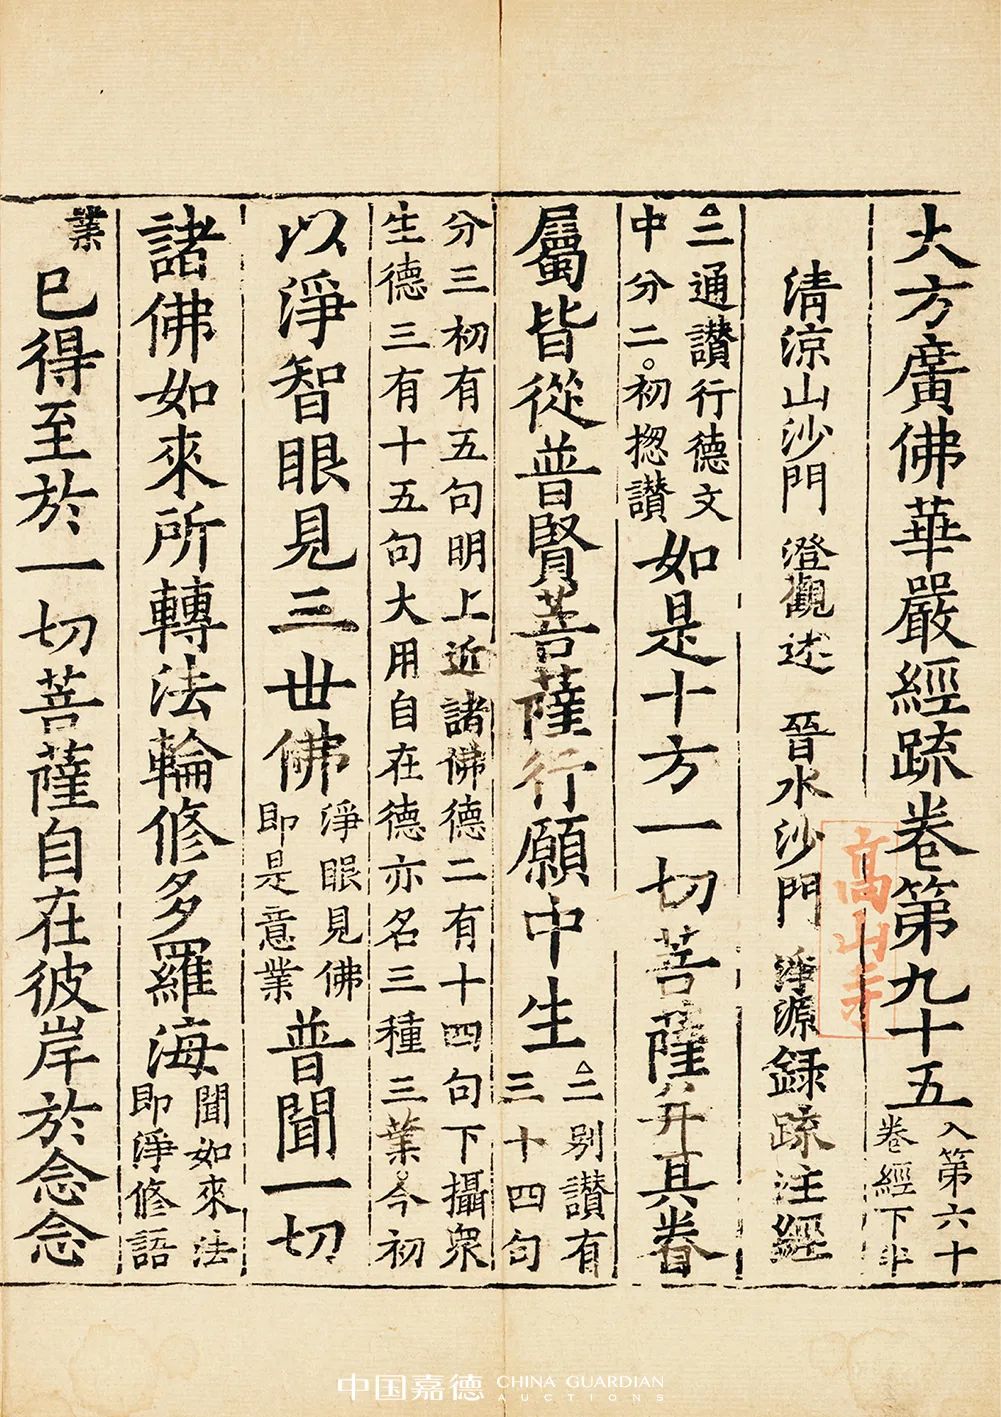 大方廣佛華嚴經䟽卷第九十五
入第六十
卷經下半
清涼山沙門 澄觀述 晉水沙門 淨源録䟽注經
二通讃行德文
中分二初揔讃
如是十方一切菩薩并其眷
屬皆從普賢菩薩行願中生
二别讃有
三十四句
分三初有五句明上近諸佛德二有十四句下攝衆
生德三有十五句大用自在德亦名三種三業今初
以淨智眼見三世佛
淨眼見佛
即是意業
普聞一切
諸佛如來所轉法輪修多羅海
聞如來法
即淨修語
業
已得至於一切菩薩自在彼岸於念念
高山寺
中国嘉德 CHINA GUARDIAN
AUCTIONS